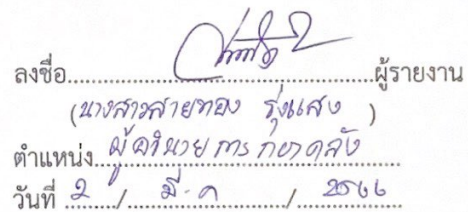 ลงชื่อ....................ผู้รายงาน
(นางสาวสายทอง รุ่งแสง)
ตำแหน่ง ผู้อำนวยการกองคลัง
วันที่ 2 / มี.ค / 2566